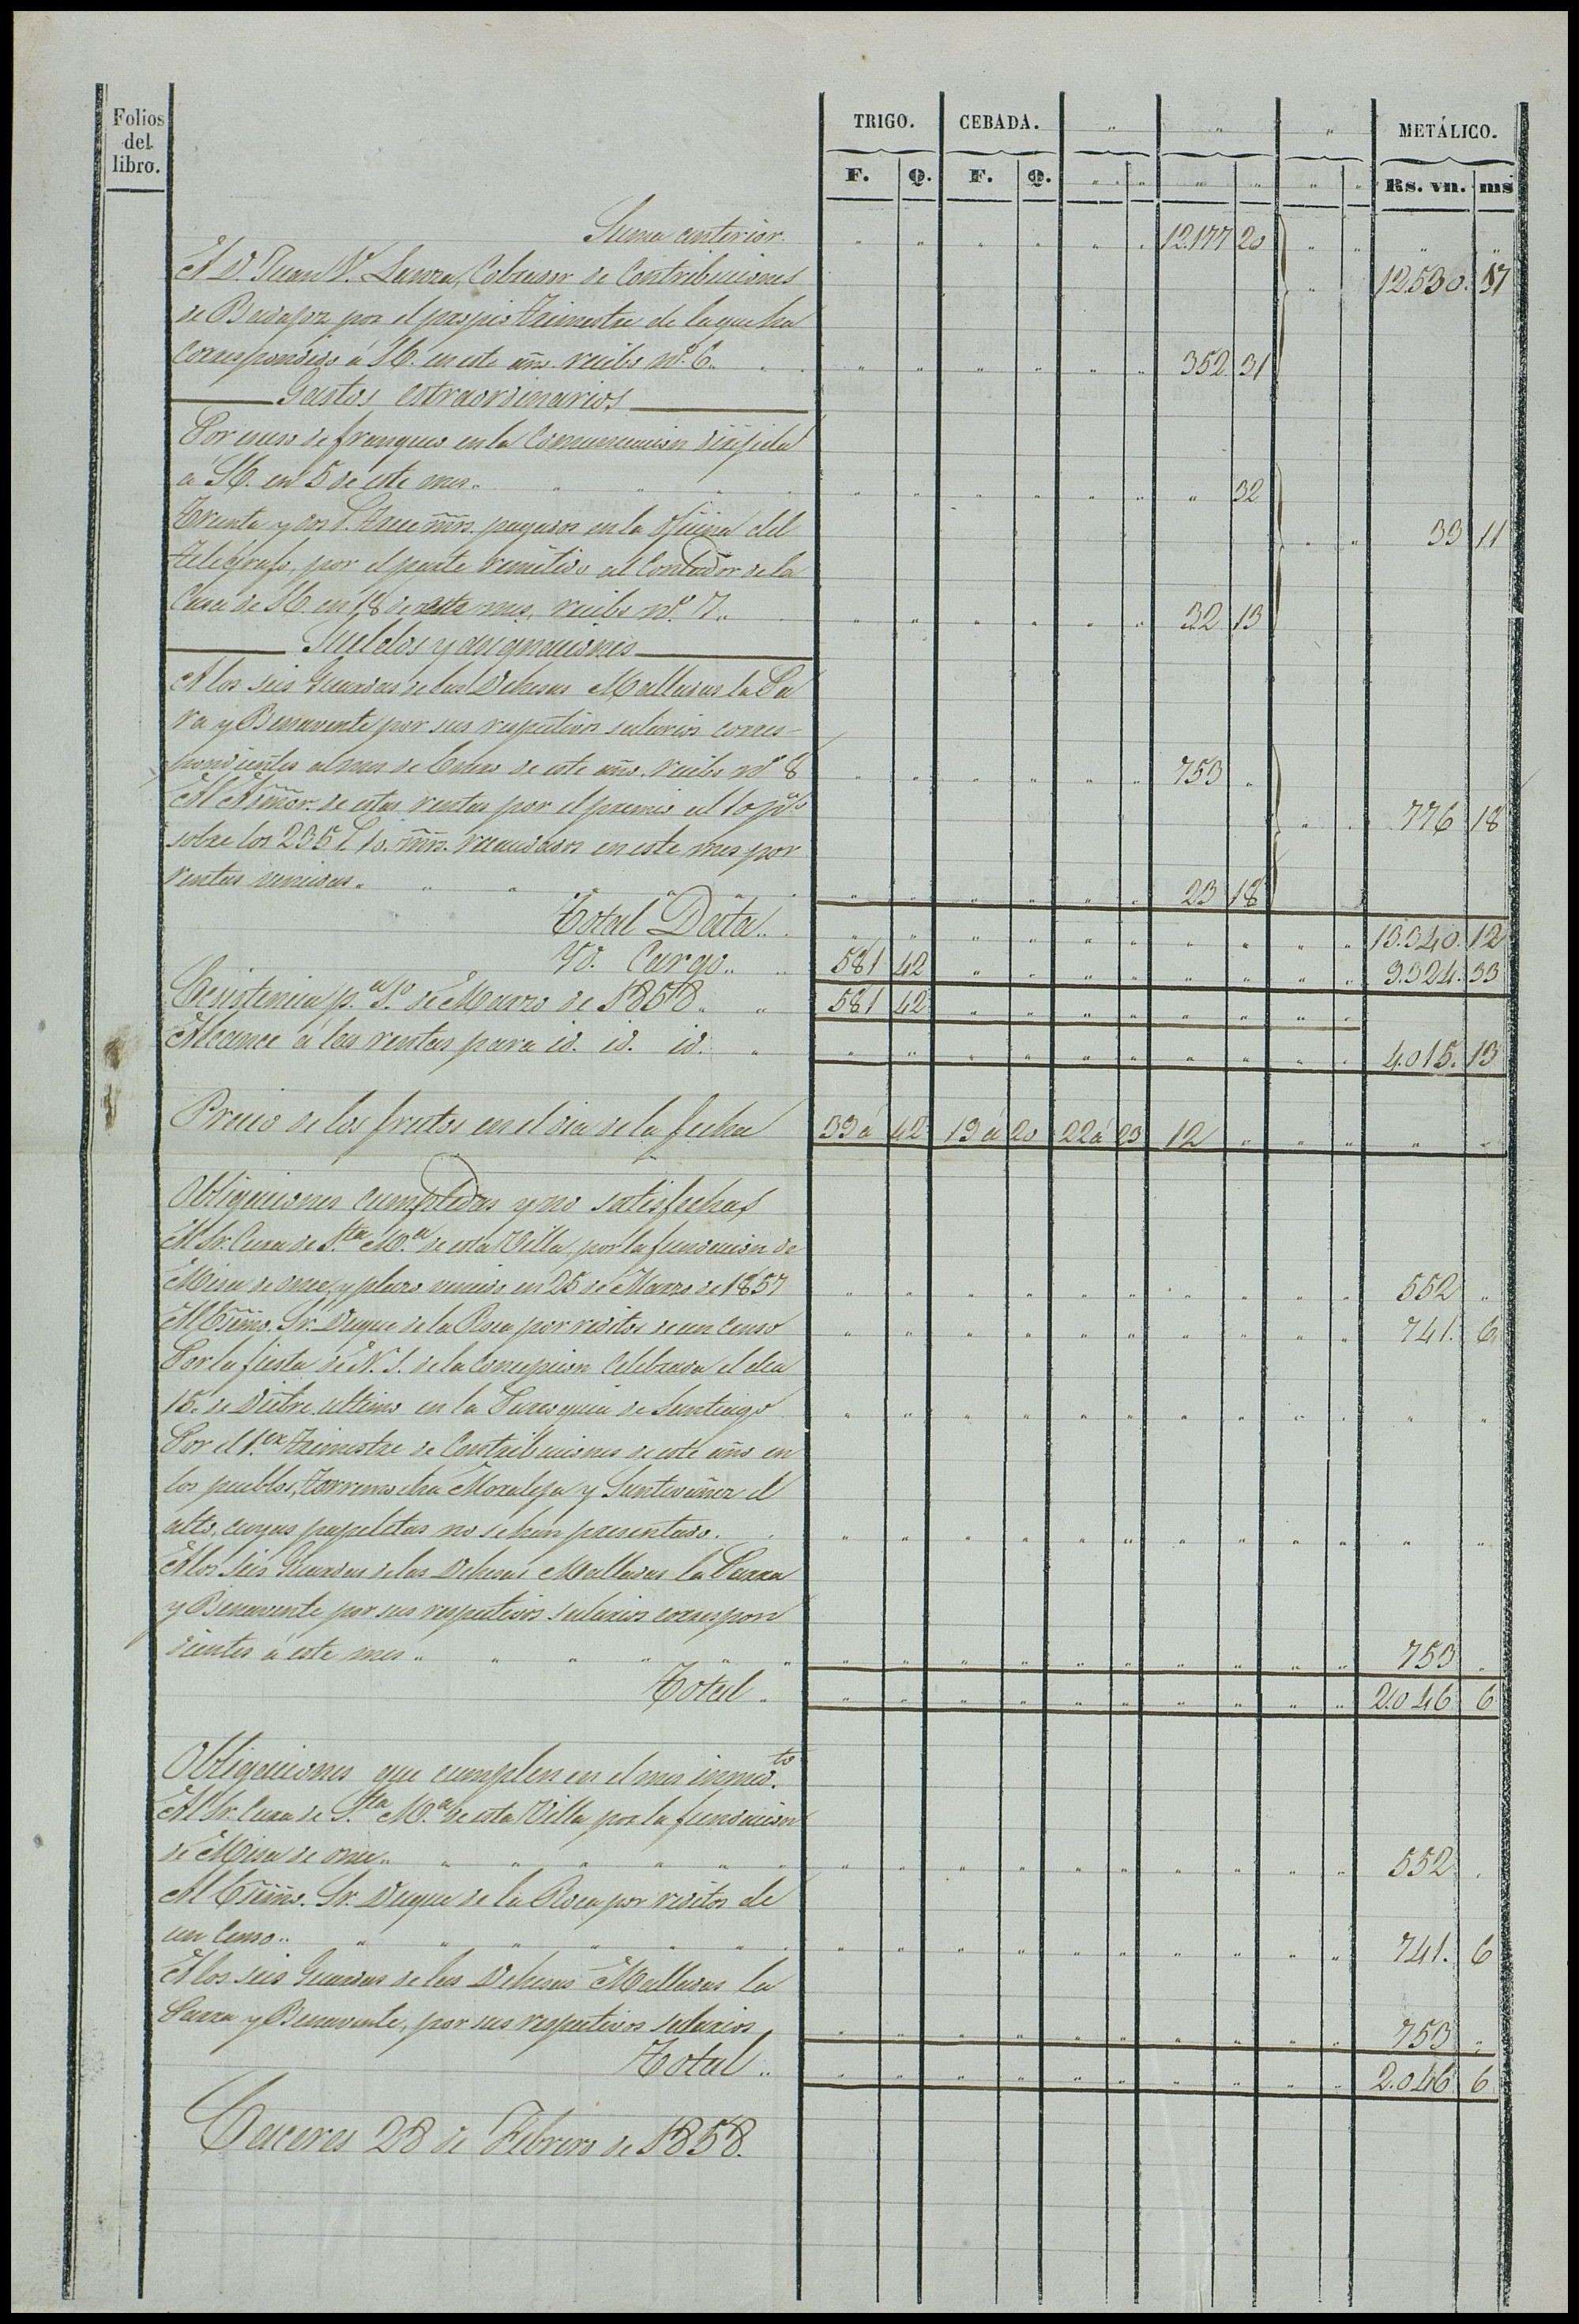 Folios del libro.
TRIGO. CEBADA. " " " METÁLICO.
F. Q. F. Q. " " " " " " Rs. vn. ms
Suma anterior. " " " " " " 12.177 20 " " " "
A D. Juan N. Lanza, Cobrador de Contribuciones " 12.530. 17
de Badajoz por el propio trimestre de la que ha
correspondido á SE. en este año. recibo nº. 6. " " " " " " 352. 31
Gastos estraordinarios
Por esceso de franqueo en la Comunicacion dirijida
á SE. en 5 de este mes. " " " " " " " " " " " 32
Treinta y dos r. trece mrs. pagados en la oficina del " " 33 11
telégrafo, por el parte remitido al Contador de la
Casa de SE. en 18 de este mes, recibo nº. 7. " " " " " " " 32. 13
Sueldos y asignaciones
A los seis Guardas de las Dehesas Malladas la Pa
rra y Benavente por sus respectivos salarios corres-
pondientes al mes de Enero de este año. recibo nº 8 " " " " " " 753 "
Al Admor. de estas rentas por el premio al 10 p% " " 776 18
sobre los 235 r. 10. mrs. recaudados en este mes por
rentas vencidas. " " " " " " " " " " " 23 18
Total Data. " " " " " " " " " " 13.340. 12
Yd. Cargo. " 581 42 " " " " " " " " 9.324. 33
Ecsistencia p.ª 1.º de Marzo de 1858. " " 581 42 " " " " " " " "
Alcance á las rentas para id. id. id. " " " " " " " " " " " 4.015. 13
Precio de los frutos en el dia de la fecha 39 á 42 19 á 20 22 á 23 12 " " " " "
Obligaciones cumplidas y no satisfechas
Al Sr. Cura de S.ta M.ª de esta Villa, por la fundacion de
Misa de once, y plazo vencido en 25 de Marzo de 1857 " " " " " " " " " " 552 "
Al Esmo. Sr. Duque de la Roca por reditos de un censo " " " " " " " " " " 741. 6
Por la fiesta de N. S. de la Concepcion Celebrada el dia
15. de Dicbre. ultimo en la Parroquia de Santiago " " " " " " " " " " " "
Por el 1.er trimestre de Contribuciones de este año en
los pueblos, Torremocha Moraleja y Santivañez el
alto, cuyas papeletas no se han presentado. " " " " " " " " " " " "
A los seis Guardas de las Dehesas Malladas la Parra
y Benavente por sus respectivos salarios correspon
dientes á este mes " " " " " " " " " " " " " " " 753 "
Total. " " " " " " " " " " 2.046 6
Obligaciones que cumplen en el mes inmed.to
Al Sr. Cura de S.ta M.ª de esta Villa por la fundacion
de Misa de once. " " " " " " " " " " " " " " " 552 "
Al Esmo. Sr. Duque de la Roca por reditos de
un censo. " " " " " " " " " " " " " " " 741. 6
A los seis Guardas de las Dehesas Malladas la
Parra y Benavente, por sus respectivos salarios " " " " " " " " " " 753 "
Total " " " " " " " " " " " 2.046 6
Caceres 28 de Febrero de 1858.